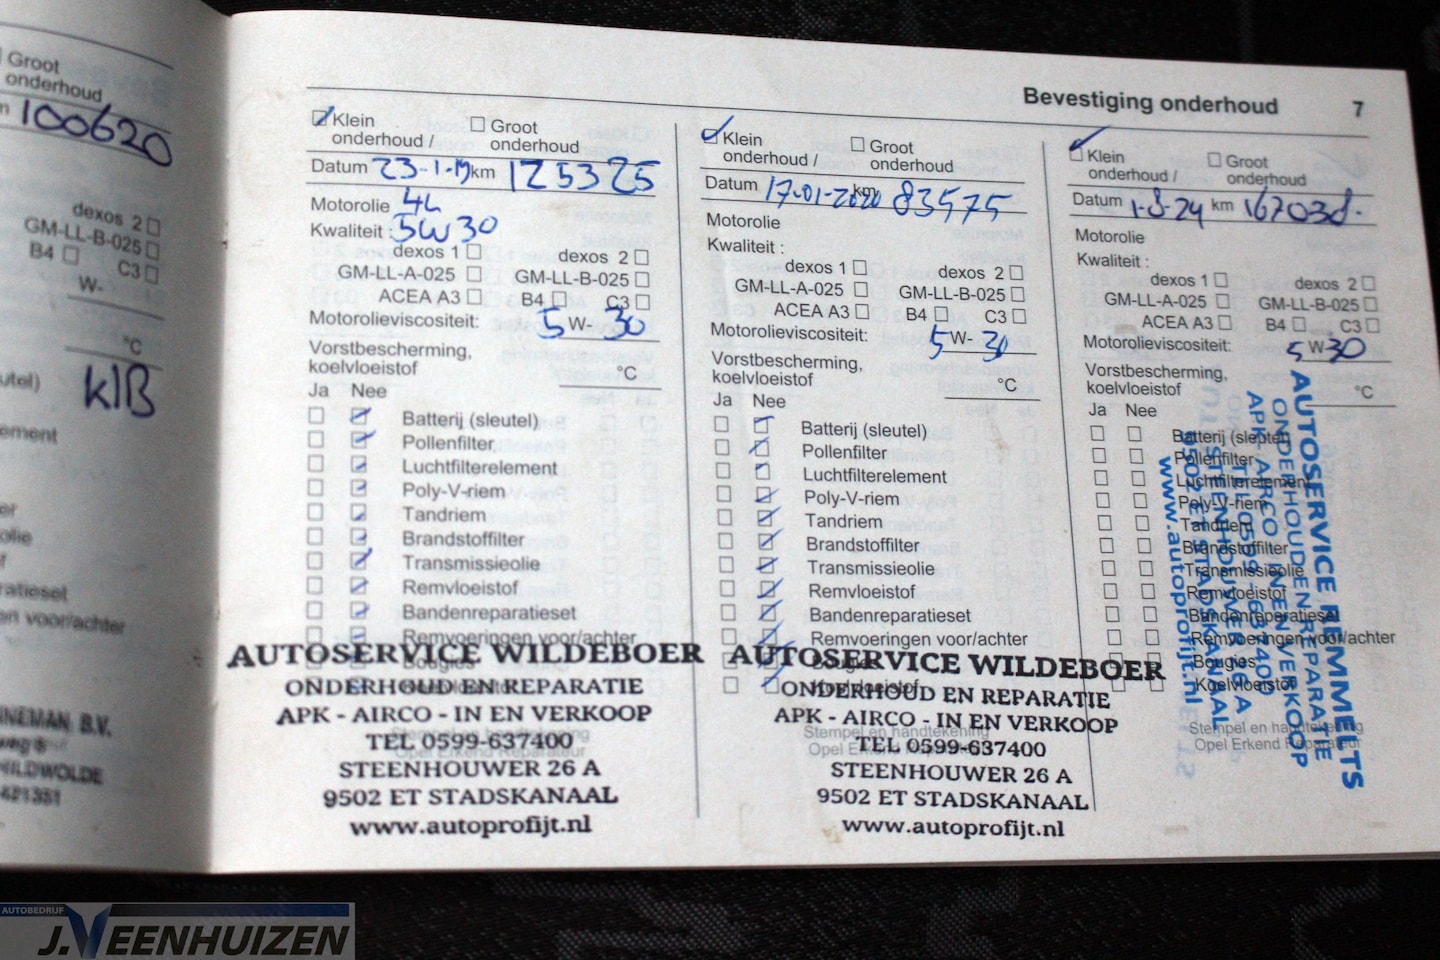 Groot
onderhoud
100620
dexos 2
GM-LL-B-025
B4 C3
W-
°C
KlB
Bevestiging onderhoud 7
Klein
onderhoud /
Groot
onderhoud
Datum 23-1-19 km 125325
Motorolie 4L
Kwaliteit : 5W30
dexos 1 dexos 2
GM-LL-A-025 GM-LL-B-025
ACEA A3 B4 C3
Motorolieviscositeit: 5 W- 30
Vorstbescherming,
koelvloeistof °C
Ja Nee
Batterij (sleutel)
Pollenfilter
Luchtfilterelement
Poly-V-riem
Tandriem
Brandstoffilter
Transmissieolie
Remvloeistof
Bandenreparatieset
Remvoeringen voor/achter
Bougies
AUTOSERVICE WILDEBOER
ONDERHOUD EN REPARATIE
APK - AIRCO - IN EN VERKOOP
TEL 0599-637400
STEENHOUWER 26 A
9502 ET STADSKANAAL
www.autoprofijt.nl
Stempel en handtekening
Opel Erkend Reparateur
Klein
onderhoud /
Groot
onderhoud
Datum 17-01-2020 km 83575
Motorolie
Kwaliteit :
dexos 1 dexos 2
GM-LL-A-025 GM-LL-B-025
ACEA A3 B4 C3
Motorolieviscositeit: 5 W- 30
Vorstbescherming,
koelvloeistof °C
Ja Nee
Batterij (sleutel)
Pollenfilter
Luchtfilterelement
Poly-V-riem
Tandriem
Brandstoffilter
Transmissieolie
Remvloeistof
Bandenreparatieset
Remvoeringen voor/achter
Bougies
Koelvloeistof
AUTOSERVICE WILDEBOER
ONDERHOUD EN REPARATIE
APK - AIRCO - IN EN VERKOOP
TEL 0599-637400
STEENHOUWER 26 A
9502 ET STADSKANAAL
www.autoprofijt.nl
Stempel en handtekening
Opel Erkend
Klein
onderhoud /
Groot
onderhoud
Datum 1-8-24 km 167038.
Motorolie
Kwaliteit :
dexos 1 dexos 2
GM-LL-A-025 GM-LL-B-025
ACEA A3 B4 C3
Motorolieviscositeit: 5 W 30
Vorstbescherming,
koelvloeistof °C
Ja Nee
Batterij (sleutel)
Pollenfilter
Luchtfilterelement
Poly-V-riem
Tandriem
Brandstoffilter
Transmissieolie
Remvloeistof
Bandenreparatieset
Remvoeringen voor/achter
Bougies
Koelvloeistof
Stempel en handtekening
Opel Erkend Reparateur
AUTOSERVICE REMMELTS
ONDERHOUD EN REPARATIE
APK - AIRCO - IN EN VERKOOP
TEL 0599-637400
STEENHOUWER 26 A
9502 ET STADSKANAAL
www.autoprofijt.nl
AUTOBEDRIJF
J.VEENHUIZEN